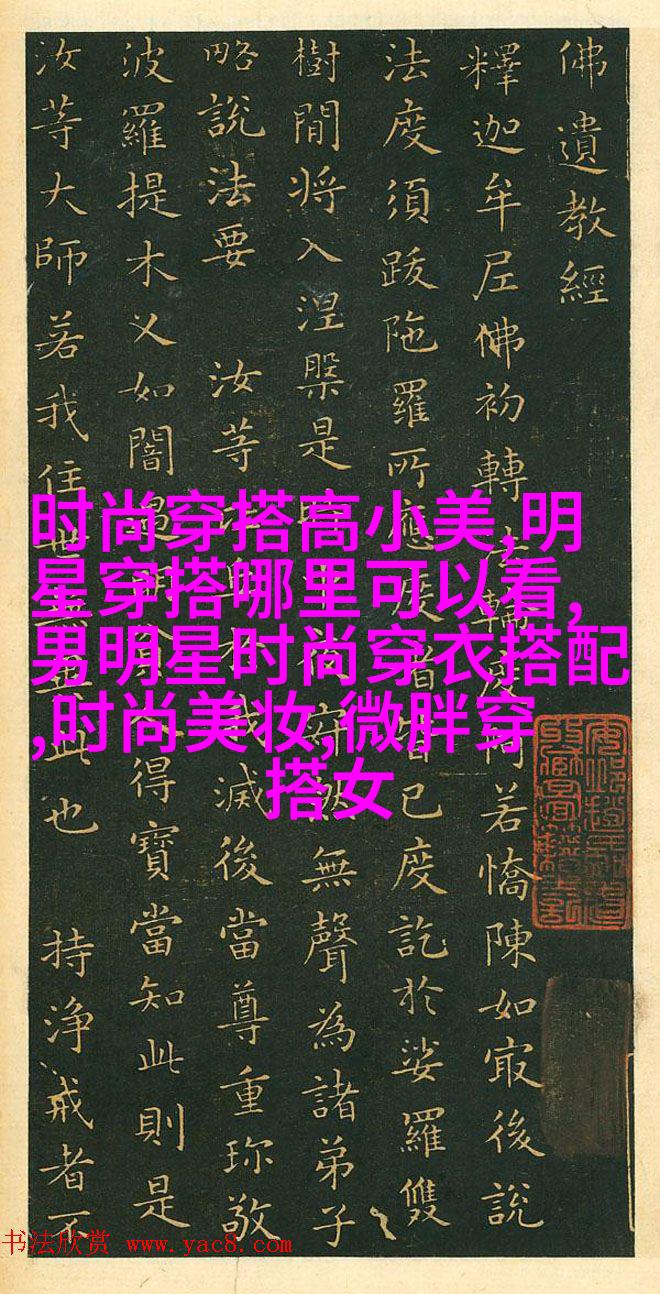 佛遺教經
釋迦牟尼佛初轉法輪度若憍陳如㝡後說
法度須跋陁羅所應度者皆已度訖於娑羅雙
樹間將入涅槃是然無聲為諸弟子
略說法要 汝等我滅後當尊重珍敬
波羅提木叉如闇遇得寶當知此則是
汝等大師若我住世無此也 持淨戒者不
时尚穿搭高小美,明
星穿搭哪里可以看,
男明星时尚穿衣搭配
,时尚美妆,微胖穿
搭女
书法欣赏 www.yac8.com